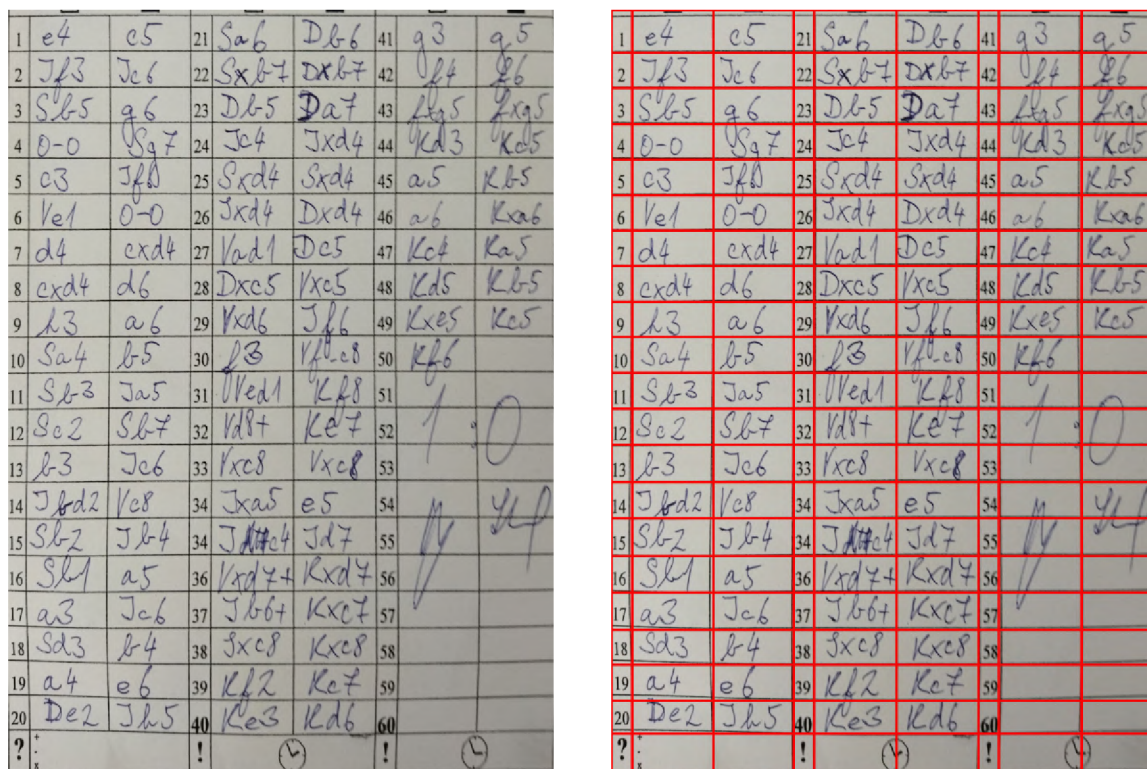 1 e4 c5 21 Sa6 Db6 41 g3 g5
2 Jf3 Jc6 22 Sxb7 Dxb7 42 f4 f6
3 Sb5 g6 23 Db5 Da7 43 fxg5 fxg5
4 0-0 Sg7 24 Jc4 Jxd4 44 Kd3 Kc5
5 c3 25 Sxd4 Sxd4 45 a5 Kb5
6 Ve1 0-0 26 Jxd4 Dxd4 46 a6 Kxa6
7 d4 cxd4 27 Vad1 Dc5 47 Kc4 Ka5
8 cxd4 d6 28 Dxc5 Vxc5 48 Kd5 Kb5
9 h3 a6 29 Vxd6 Jf6 49 Kxe5 Kc5
10 Sa4 b5 30 f3 Vf-c8 50 Kf6
11 Sb3 Ja5 31 Ved1 Kf8 51
12 Sc2 Sb7 32 Vd8+ Ke7 52 1 : 0
13 b3 Jc6 33 Vxc8 Vxc8 53
14 Jbd2 Vc8 34 Jxa5 e5 54
15 Sb2 Jb4 34 c4 Jd7 55
16 Sb1 a5 36 Vxd7+ Kxd7 56
17 a3 Jc6 37 Jb6+ Kxc7 57
18 Sd3 b4 38 Jxc8 Kxc8 58
19 a4 e6 39 Kf2 Kc7 59
20 De2 Jh5 40 Ke3 Kd6 60
? + - x !
1 e4 c5 21 Sa6 Db6 41 g3 g5
2 Jf3 Jc6 22 Sxb7 Dxb7 42 f4 f6
3 Sb5 g6 23 Db5 Da7 43 fxg5 fxg5
4 0-0 Sg7 24 Jc4 Jxd4 44 Kd3 Kc5
5 c3 25 Sxd4 Sxd4 45 a5 Kb5
6 Ve1 0-0 26 Jxd4 Dxd4 46 a6 Kxa6
7 d4 cxd4 27 Vad1 Dc5 47 Kc4 Ka5
8 cxd4 d6 28 Dxc5 Vxc5 48 Kd5 Kb5
9 h3 a6 29 Vxd6 Jf6 49 Kxe5 Kc5
10 Sa4 b5 30 f3 Vf-c8 50 Kf6
11 Sb3 Ja5 31 Ved1 Kf8 51
12 Sc2 Sb7 32 Vd8+ Ke7 52 1 : 0
13 b3 Jc6 33 Vxc8 Vxc8 53
14 Jbd2 Vc8 34 Jxa5 e5 54
15 Sb2 Jb4 34 c4 Jd7 55
16 Sb1 a5 36 Vxd7+ Kxd7 56
17 a3 Jc6 37 Jb6+ Kxc7 57
18 Sd3 b4 38 Jxc8 Kxc8 58
19 a4 e6 39 Kf2 Kc7 59
20 De2 Jh5 40 Ke3 Kd6 60
? + - x ! !